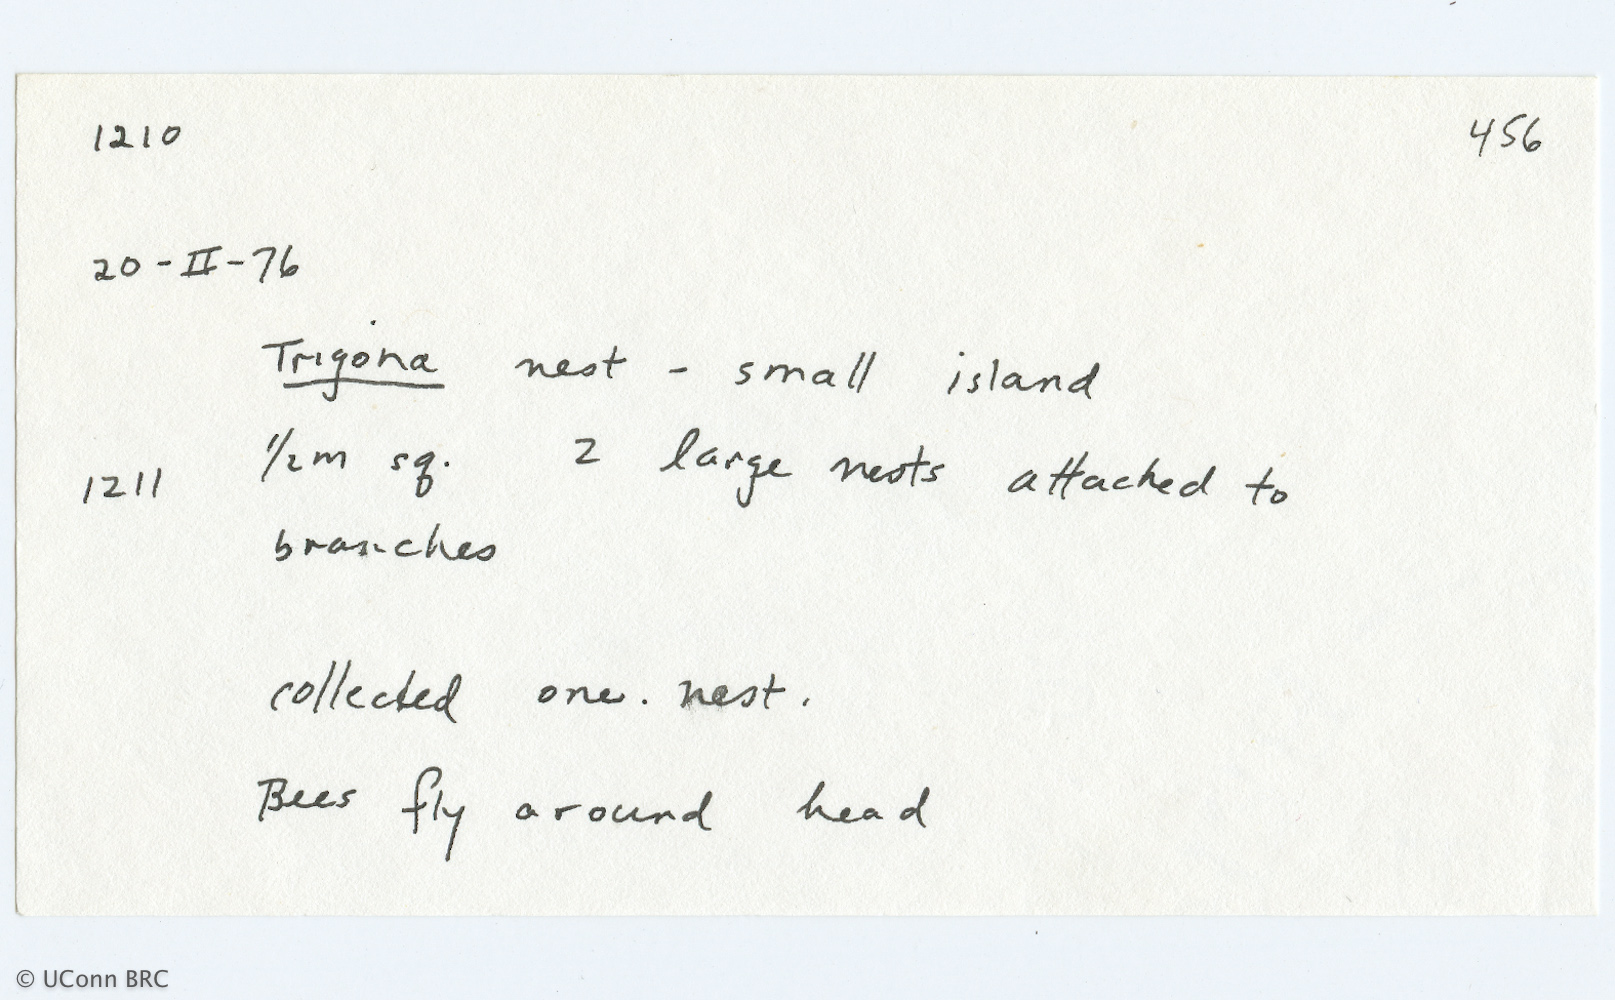 1210 456
20-II-76
Trigona nest - small island
1/2m sq. 2 large nests attached to
1211
branches
collected one. nest.
Bees fly around head
© UConn BRC